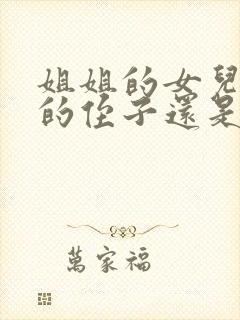 姐姐的女兒
的侄子還是
萬家福